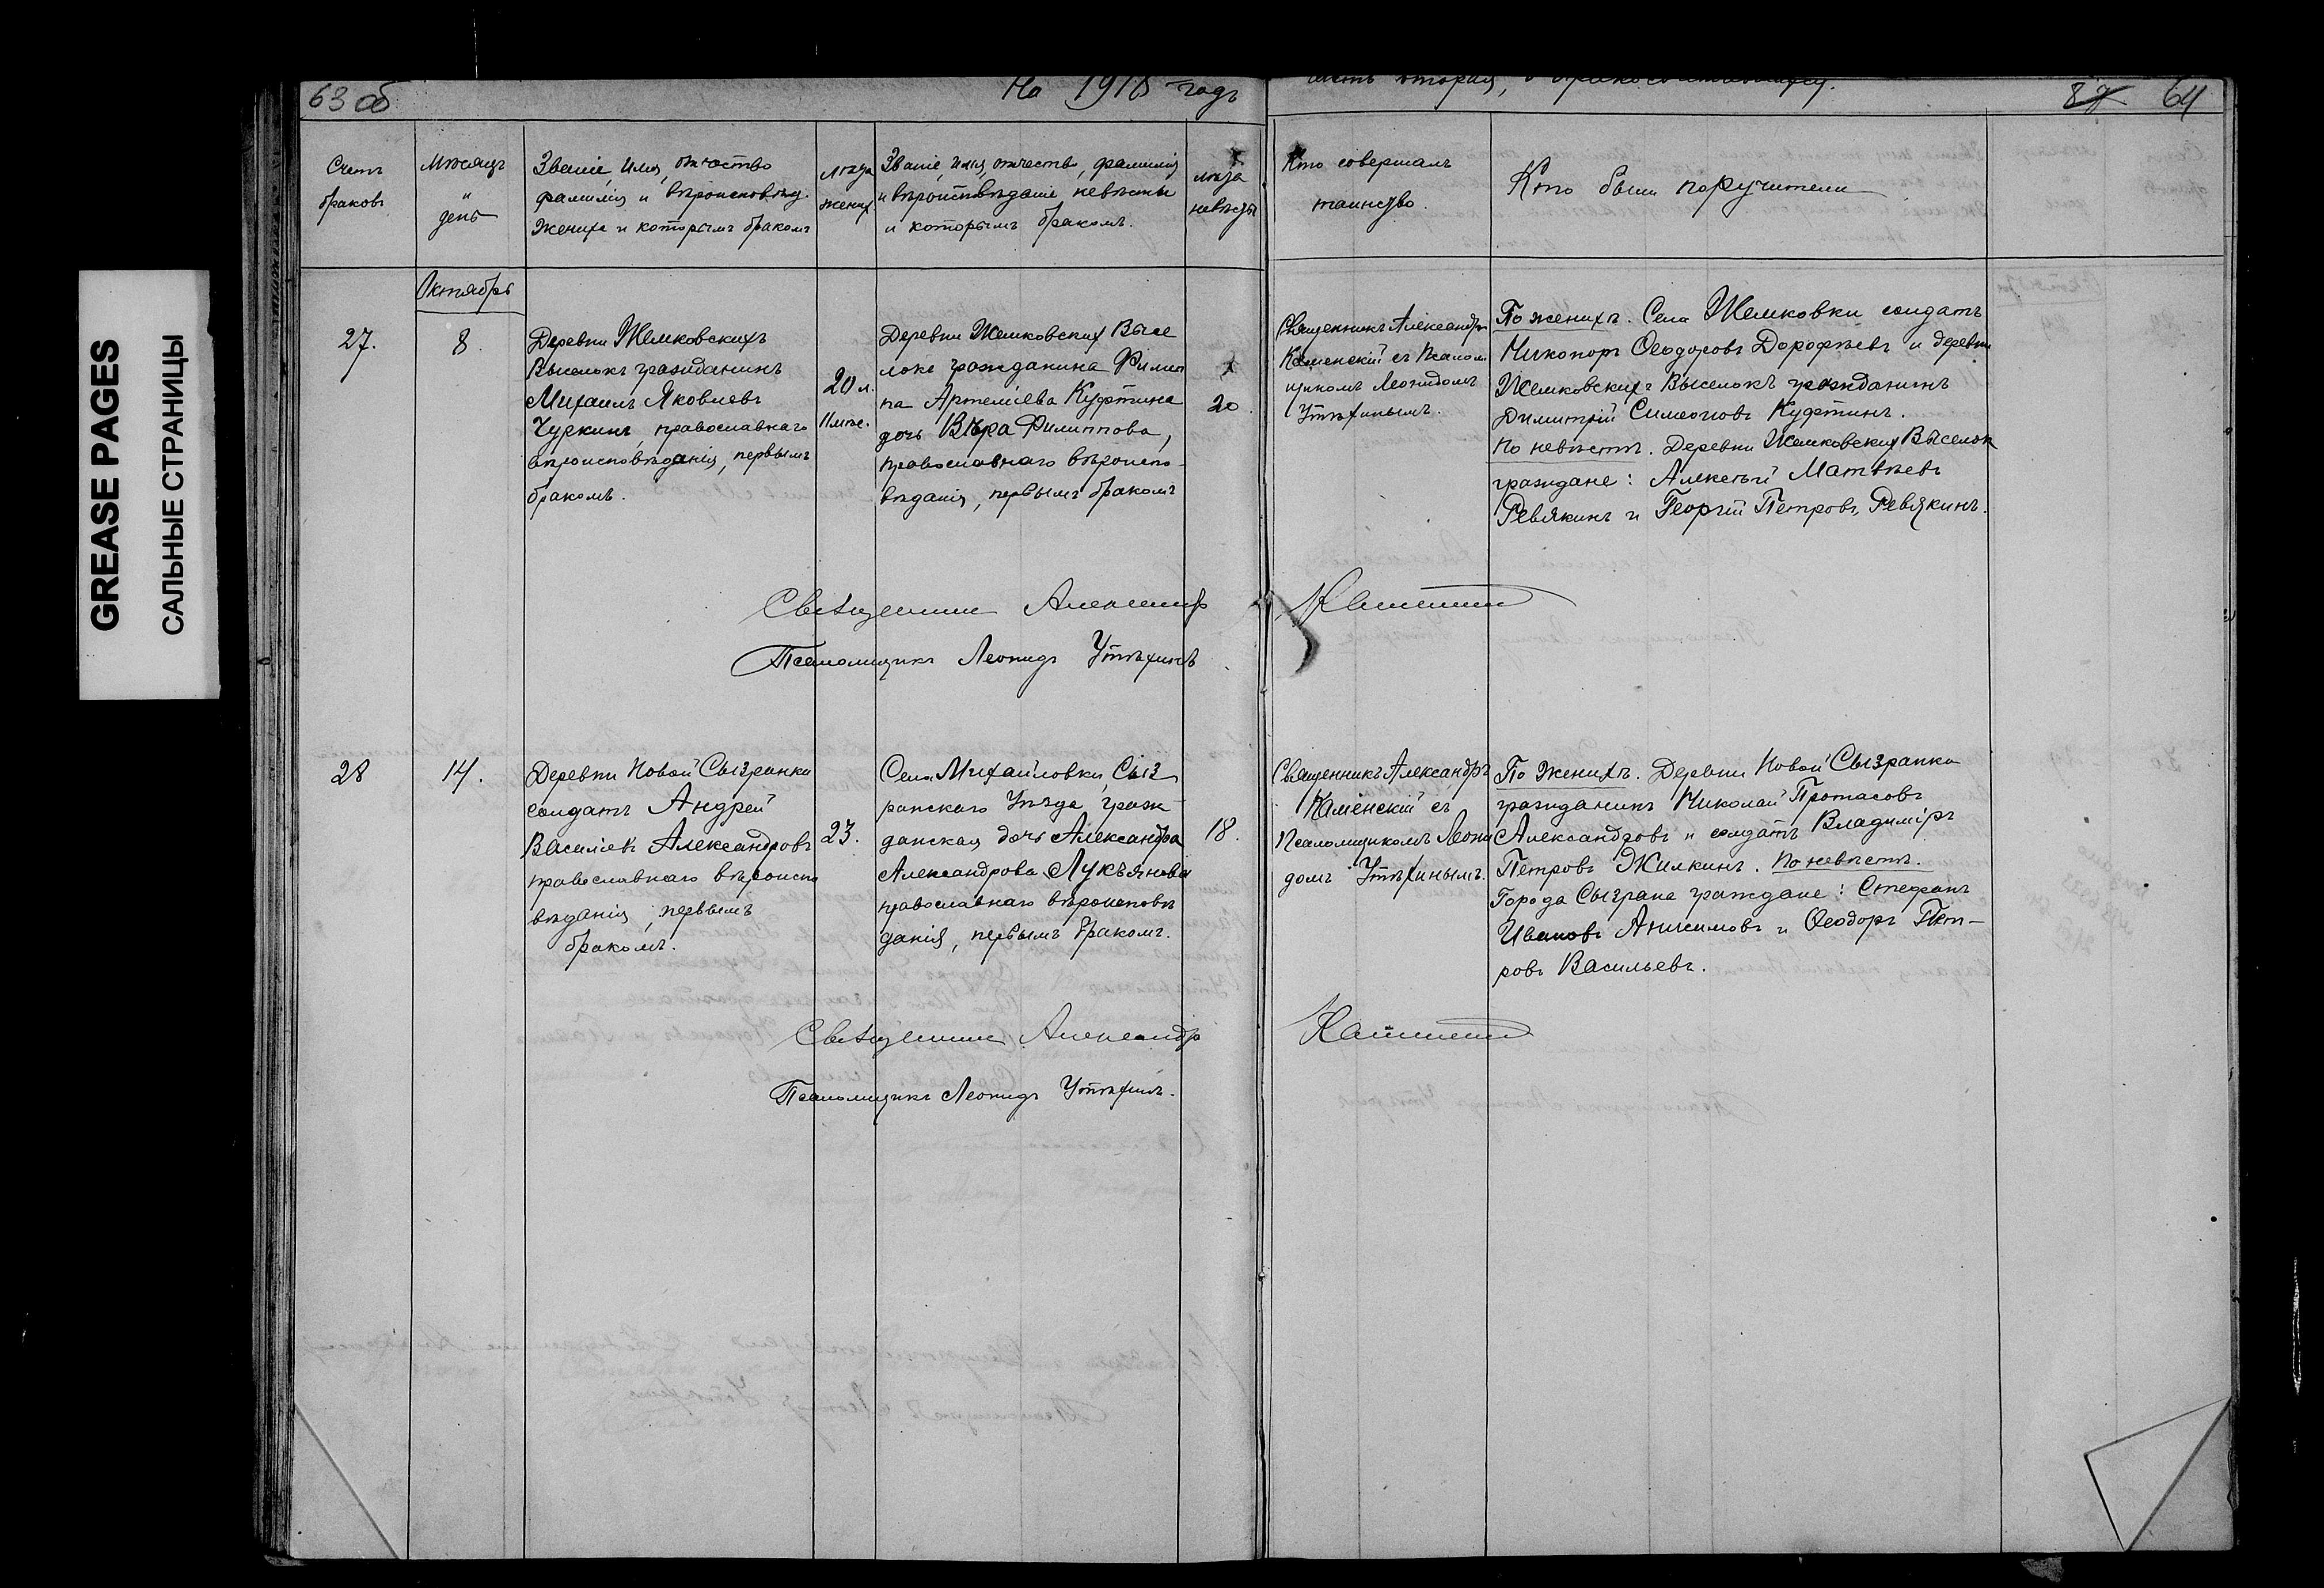 GREASE PAGES
САЛЬНЫЕ СТРАНИЦЫ
63 об
На 1918 годъ
часть вторая, о бракосочетавшихся.
87 64
Счетъ браковъ
Мѣсяцъ и день
Званіе, имя, отчество
фамилія и вѣроисповѣд.
жениха и которымъ бракомъ
лѣта жених.
Званіе, имя, отчество, фамилія
и вѣроисповѣданіе невѣсты
и которымъ бракомъ.
лѣта невѣсты
Кто совершалъ
таинство.
Кто были поручители
Октябрь
27.
8.
Деревни Жемковскихъ
Выселокъ гражданинъ
Михаилъ Яковлевъ
Чуркинъ, православнаго
вѣроисповѣданія, первымъ
бракомъ.
20 л.
11 мѣс.
Деревни Жемковских Высе
локъ гражданина Филип
па Артеміева Куфтина
дочь Вѣра Филиппова,
православнаго вѣроиспо-
вѣданія, первымъ бракомъ
20.
Священникъ Александръ
Каменскій съ Псалом
щикомъ Леонидомъ
Утѣхинымъ.
По женихѣ. Села Жемковки солдатъ
Никопоръ Ѳеодоровъ Дорофѣевъ и деревни
Жемковскихъ Выселокъ гражданинъ
Димитрій Симеоновъ Куфтинъ.
По невѣстѣ. Деревни Жемковских Выселок
граждане: Алексѣй Матвѣевъ
Ревякинъ и Георгій Петровъ Ревякинъ.
Священник Александр Каменский
Псаломщикъ Леонидъ Утѣхинъ
28
14.
Деревни Новой Сызранки
солдатъ Андрей
Василіевъ Александровъ
православнаго вѣроиспо
вѣданія, первымъ
бракомъ.
23.
Села Михайловки, Сыз
ранскаго Уѣзда, граж
данская дочь Александра
Александрова Лукъянова
православнаго вѣроисповѣ
данія, первымъ бракомъ.
18.
Священникъ Александръ
Каменскій съ
Псаломщикомъ Леони
домъ Утѣхинымъ.
По женихѣ. Деревни Новой Сызранки
гражданинъ Николай Протасовъ
Александровъ и солдатъ Владиміръ
Петровъ Жилкинъ. По невѣстѣ.
Города Сызрана граждане: Стефанъ
Ивановъ Анисимовъ и Ѳеодоръ Пет-
ровъ Васильевъ.
Священник Александр Каменский
Псаломщикъ Леонидъ Утѣхинъ.